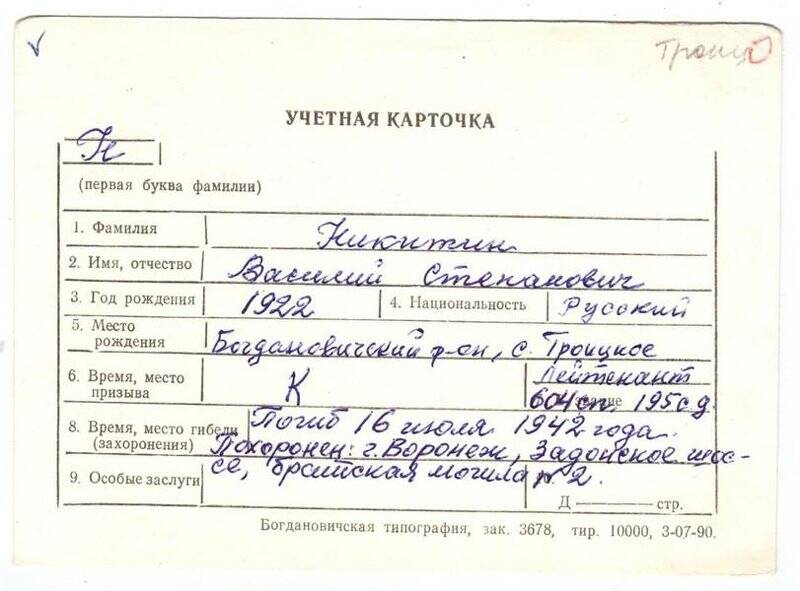 Троиц
УЧЕТНАЯ КАРТОЧКА
Н
(первая буква фамилии)
1. Фамилия Никитин
2. Имя, отчество Василий Степанович
3. Год рождения 1922 4. Национальность Русский
5. Место рождения Богдановичский р-он, с. Троицкое
6. Время, место призыва К Лейтенант
звание 604 сп, 195 с.д.
8. Время, место гибели (захоронения) Погиб 16 июля 1942 года.
Похоронен: г. Воронеж, Задонское шос-
9. Особые заслуги се, братская могила № 2.
Д ——— стр.
Богдановичская типография, зак. 3678, тир. 10000, 3-07-90.